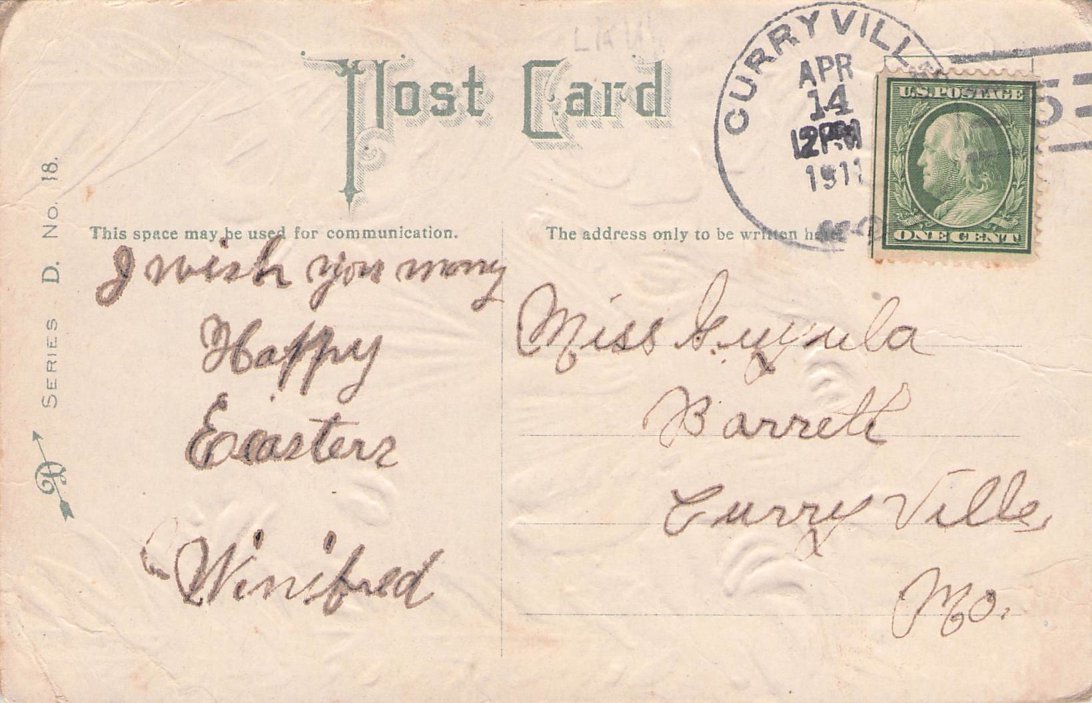 Post Card
CURRYVILLE
APR
14
12 PM
1911
MO.
5
U.S. POSTAGE
ONE CENT
SERIES D. No. 18.
This space may be used for communication.
The address only to be written
I wish you many
Happy
Easters
Winifred
Miss
Barrett
Curry Ville
Mo.